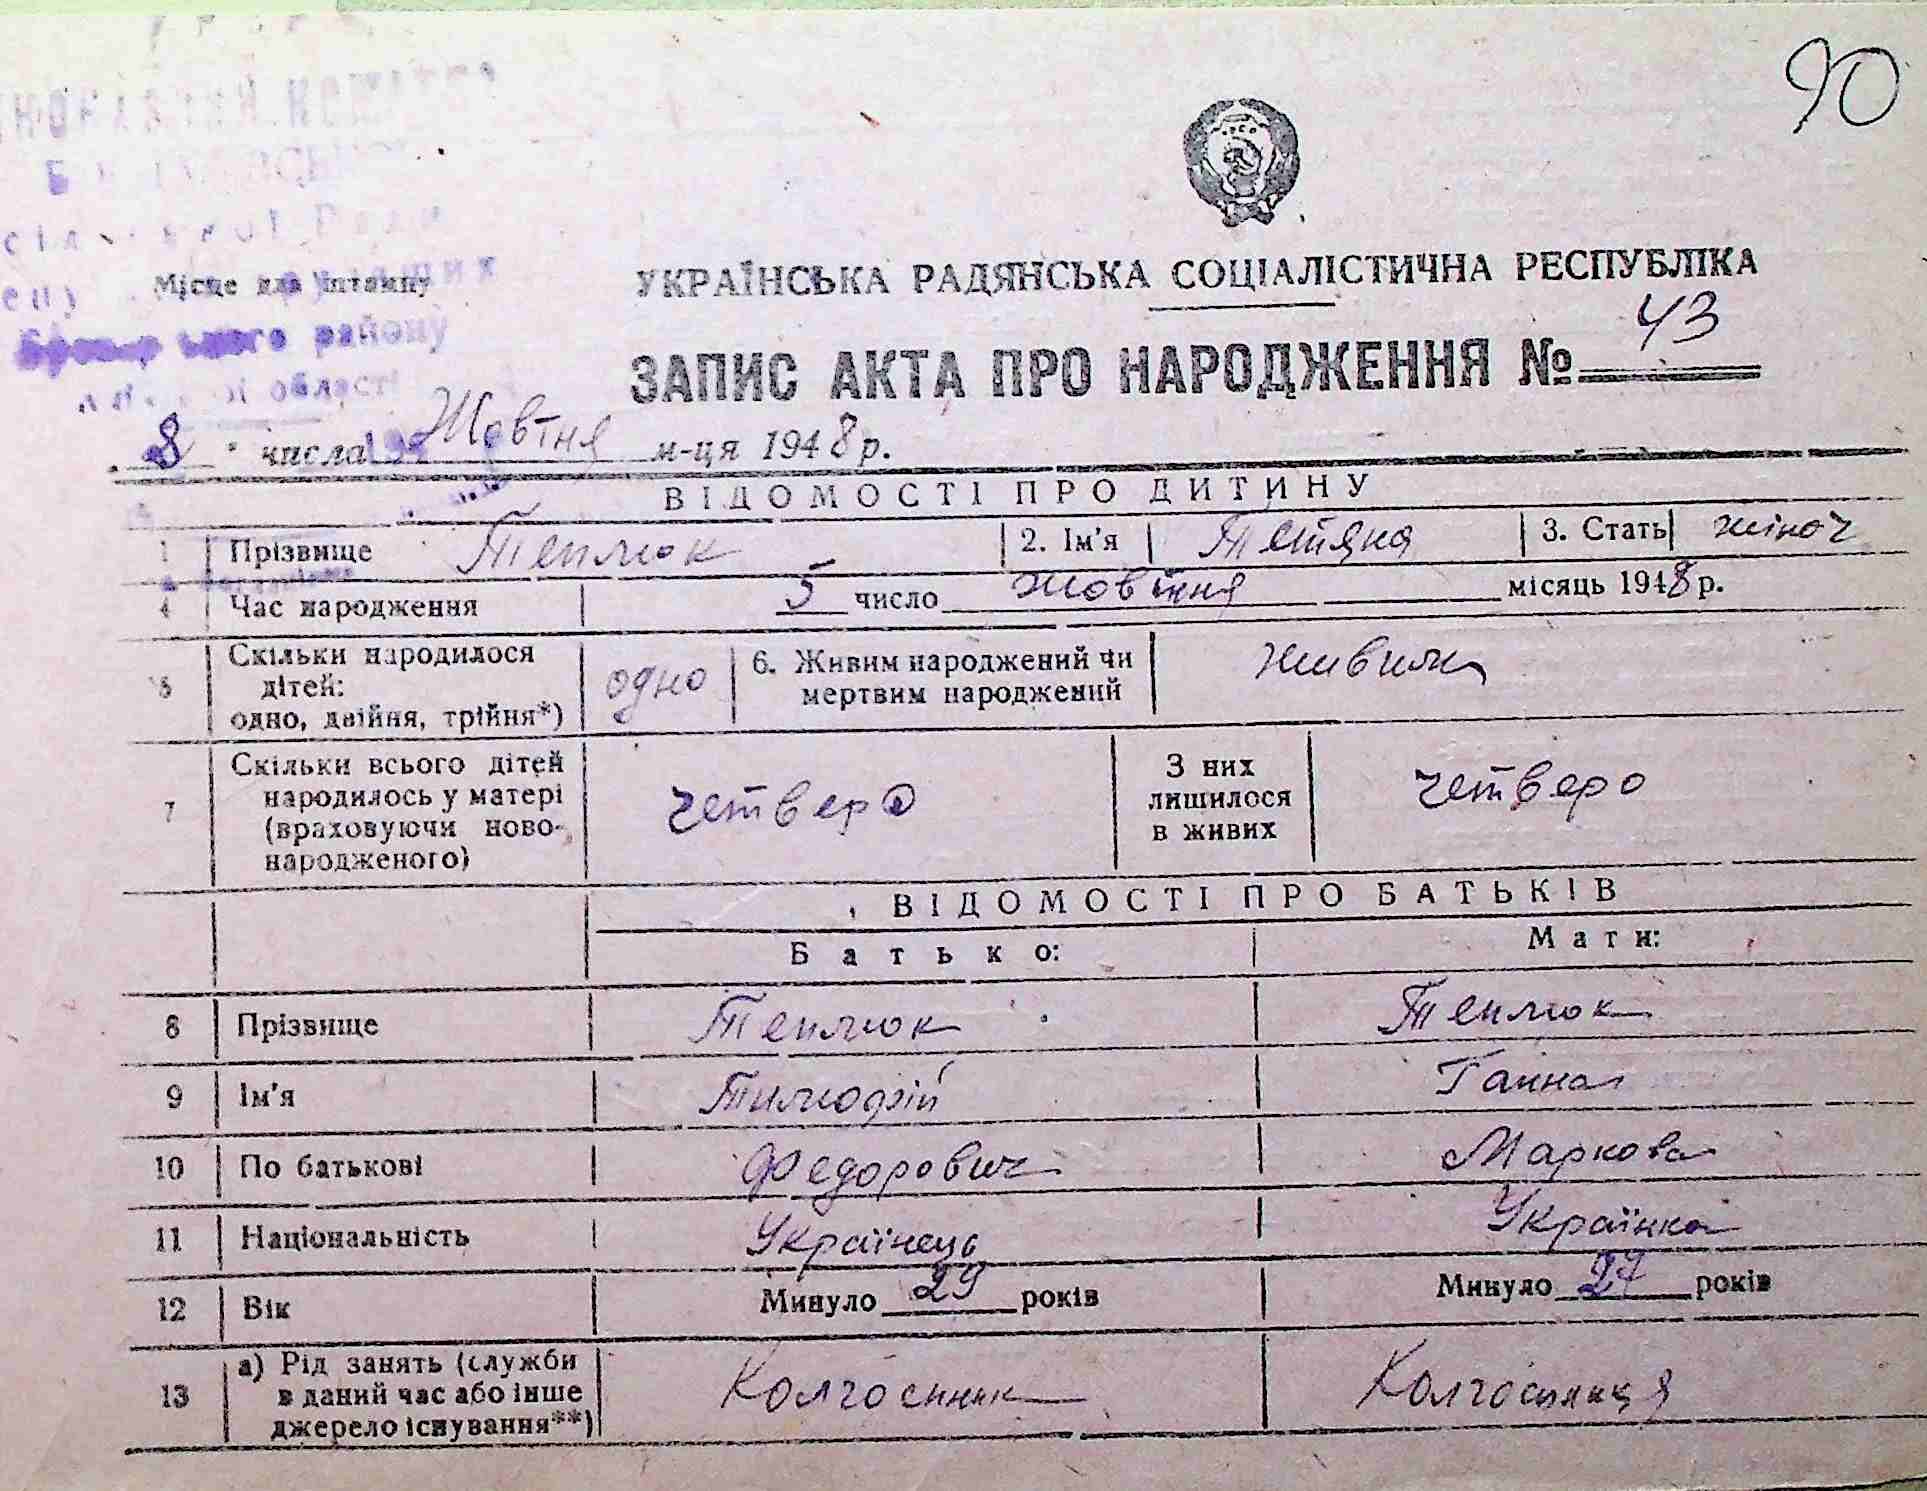 90
сільської Ради
району
області
Місце для штампу
УКРАЇНСЬКА РАДЯНСЬКА СОЦІАЛІСТИЧНА РЕСПУБЛІКА
ЗАПИС АКТА ПРО НАРОДЖЕННЯ № 43
„8“ числа Жовтня м-ця 1948 р.
ВІДОМОСТІ ПРО ДИТИНУ
1 Прізвище Теплюк 2. Ім'я Тетяна 3. Стать жіноч
4 Час народження 5 число жовтня місяць 1948 р.
5 Скільки народилося дітей: одно, двійня, трійня*) одно 6. Живим народжений чи мертвим народжений живим
7 Скільки всього дітей народилось у матері (враховуючи ново-народженого) четверо З них лишилося в живих четверо
ВІДОМОСТІ ПРО БАТЬКІВ
Батько: Мати:
8 Прізвище Теплюк Теплюк
9 Ім'я Тимофій Ганна
10 По батькові Федорович Маркова
11 Національність Українець Українка
12 Вік Минуло 29 років Минуло 27 років
13 а) Рід занять (служби в даний час або інше джерело існування**) Колгоспник Колгоспниця